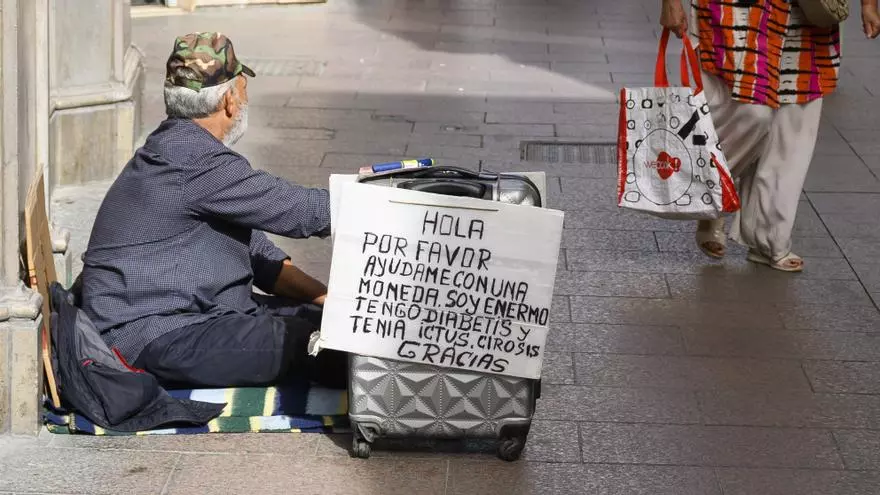 HOLA
POR FAVOR
AYUDAME CON UNA
MONEDA, SOY ENERMO
TENGO DIABETIS Y
TENIA ICTUS, CIROSIS
GRACIAS
we